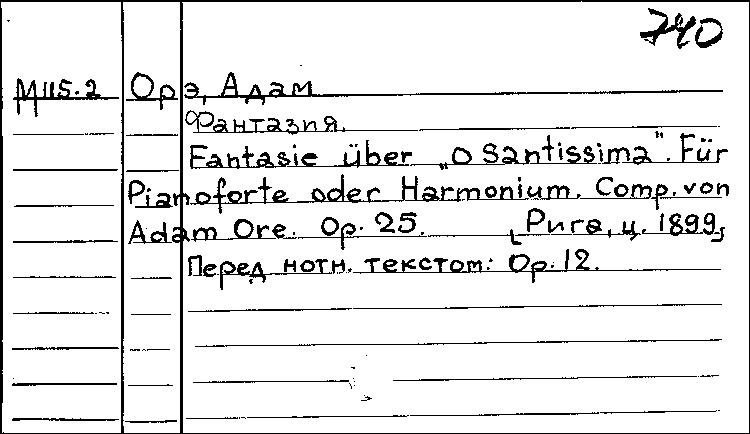 740
М115.2 Орэ, Адам
Фантазия.
Fantasie über „O Santissima". Für
Pianoforte oder Harmonium. Comp. von
Adam Ore. Op. 25. [Рига, ц. 1899]
Перед нотн. текстом: Op. 12.